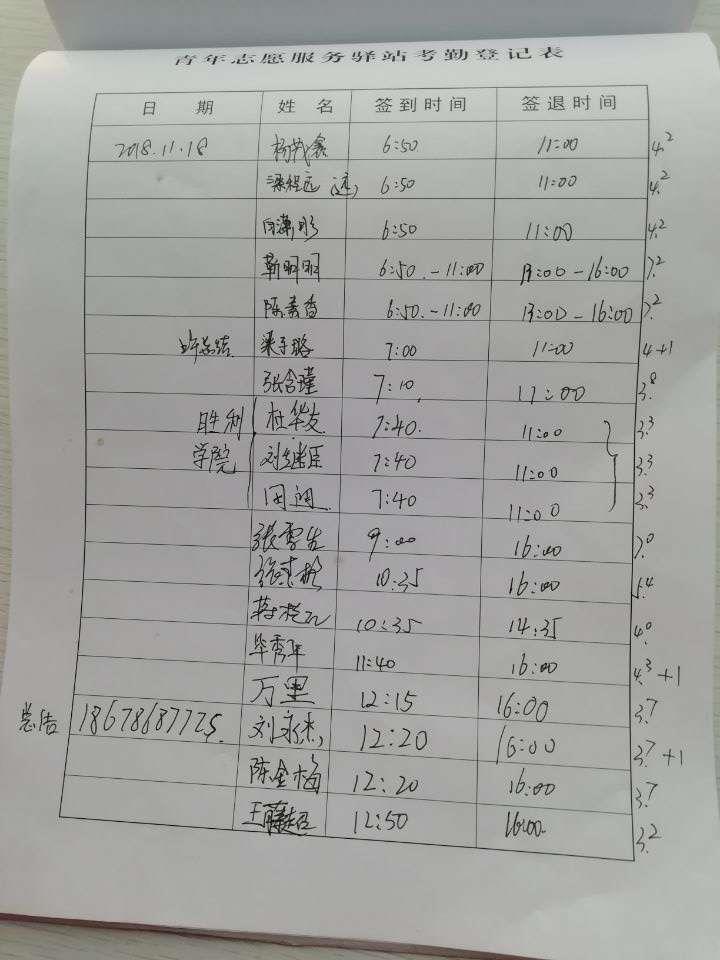 青年志愿服务驿站考勤登记表
日 期 姓 名 签到时间 签退时间
2018.11.18 杨茂鑫 6:50 11:00 4.2
梁程远 6:50 11:00 4.2
潇彤 6:50 11:00 4.2
靳明明 6:50-11:00 13:00-16:00 7.2
陈秀香 6:50-11:00 13:00-16:00 7.2
总结 梁子璐 7:00 11:00 4+1
张含瑾 7:10 11:00 3.8
胜利 杜华友 7:40 11:00 3.3
学院 刘继臣 7:40 11:00 3.3
田润 7:40 11:00 3.3
张雪生 9:00 16:00 7.0
张 10:35 16:00 5.4
10:35 14:35 4.0
毕秀军 11:40 16:00 4.3+1
万里 12:15 16:00 3.7
总结 18678687725 刘永杰 12:20 16:00 3.7+1
陈金梅 12:20 16:00 3.7
王 12:50 16:00 3.2